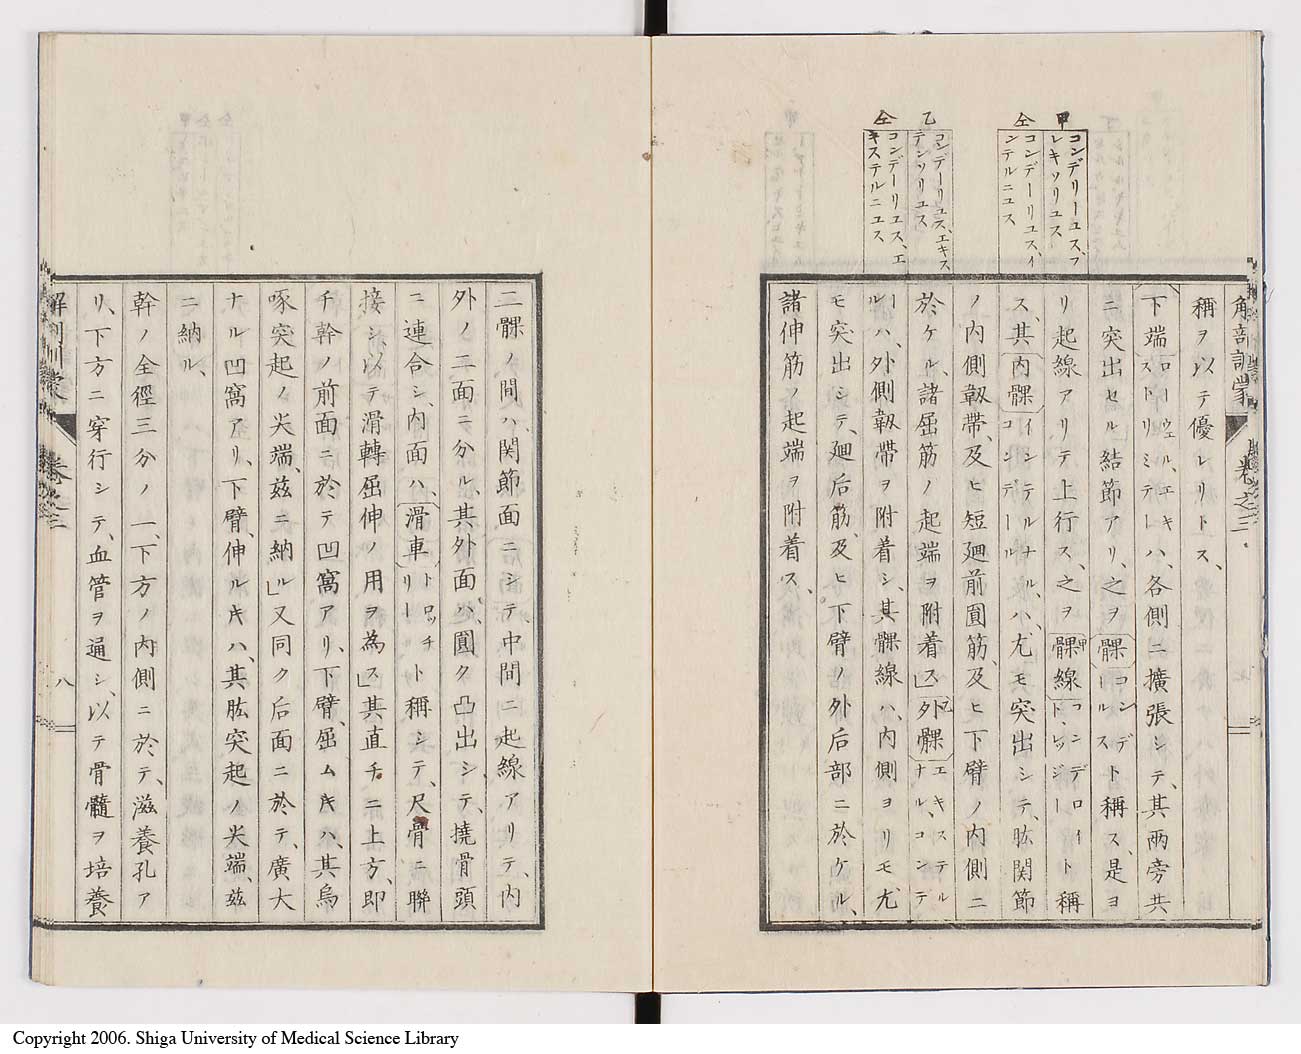 甲
コンデリーユス、フ
レキソリユス
仝
コンデーリユス、イ
ンテルニユス
乙
コンデーリユス、エキス
テンソリユス
仝
コンデーリユス、エ
キステルニユス
解剖訓蒙 卷之三
稱ヲ以テ優レリトス、
下端ローウェル、エキストリミテーハ、各側ニ擴張シテ、其兩旁共
ニ突出セル結節アリ、之ヲ髁コンデールスト稱ス、是ヨ
リ起線アリテ上行ス、之ヲ髁線コンデロイト、リッジート稱
ス、其内髁インテルナル、コンデールハ、尤モ突出シテ、肱関節
ノ内側靱帶、及ヒ短廻前圓筋、及ヒ下臂ノ内側ニ
於ケル、諸屈筋ノ起端ヲ附着ス」外髁エキステルナル、コンデ
ールハ、外側靱帶ヲ附着シ、其髁線ハ、内側ヨリモ尤
モ突出シテ、廻后筋、及ヒ下臂ノ外后部ニ於ケル、
諸伸筋ノ起端ヲ附着ス、
二髁ノ間ハ、関節面ニシテ中間ニ起線アリテ、内
外ノ二面ニ分ル、其外面ハ、圓ク凸出シテ、撓骨頭
ニ連合シ、内面ハ、滑車トロッチリーート稱シテ、尺骨ニ聯
接シ、以テ滑轉屈伸ノ用ヲ為ス」其直チニ上方、即
チ幹ノ前面ニ於テ凹窩アリ、下臂、屈ムキハ、其烏
啄突起ノ尖端、玆ニ納ル」又同ク后面ニ於テ、廣大
ナル凹窩アリ、下臂、伸ルキハ、其肱突起ノ尖端、玆
ニ納ル、
幹ノ全徑三分ノ一、下方ノ内側ニ於テ、滋養孔ア
リ、下方ニ穿行シテ、血管ヲ通シ、以テ骨髓ヲ培養
解剖訓蒙 卷之三 八
Copyright 2006. Shiga University of Medical Science Library